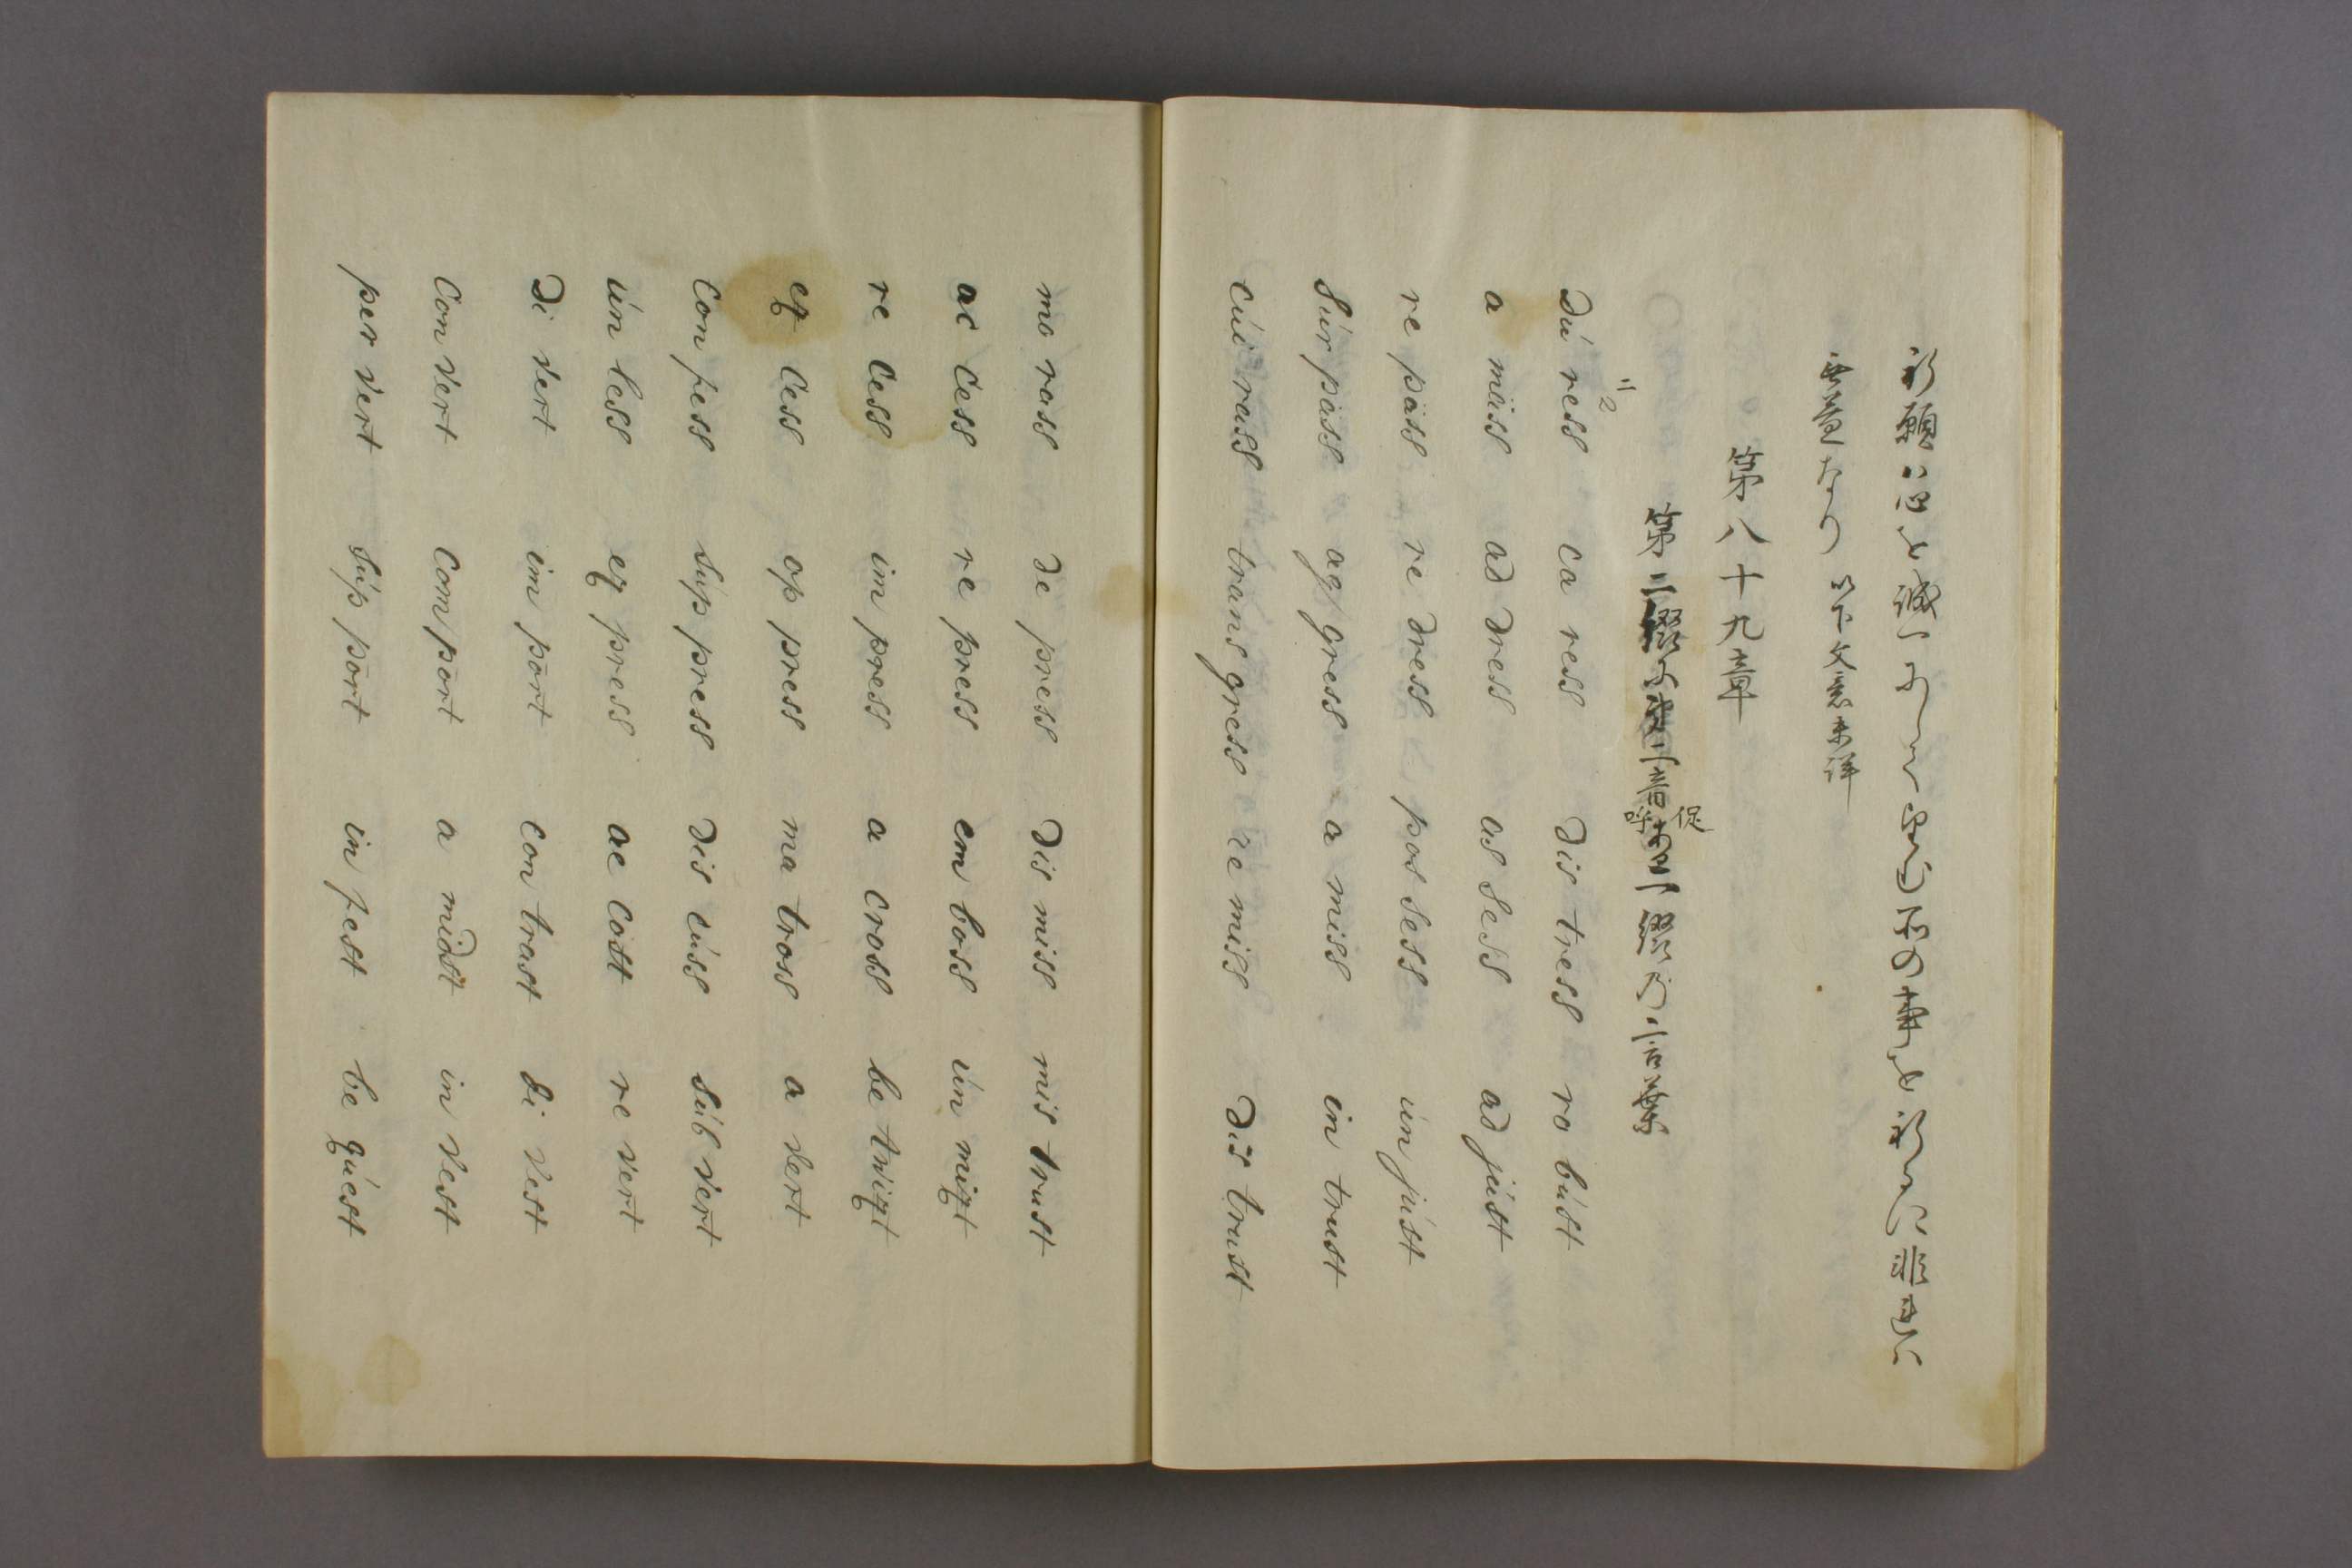 祈願ハ心を誠一にして望む所の事を祈るに非ればハ
無益なり 以下文意未詳
第八十九章
第二綴の音促呼する二綴の言葉
二 2
dú ress ca ress dis tress ro búst
a mäss ad dress as sess ad júst
re päss re dress pos sess ún júst
Súr päss ag gress a miss in trust
cúi rass trans gress re miss Dis trust
mo rass de press Dis miss mis trust
ac cess re press em boss ún mixt
re cess im press a cross be twixt
ex cess op press ma tross a vert
Con fess sup press Dis cúss Súb vert
ún less ex press ac cost re vert
Di vert im pōrt con trast Di vest
Con vert Com pōrt a midst in vest
per vert Súp pōrt in fest be qúest